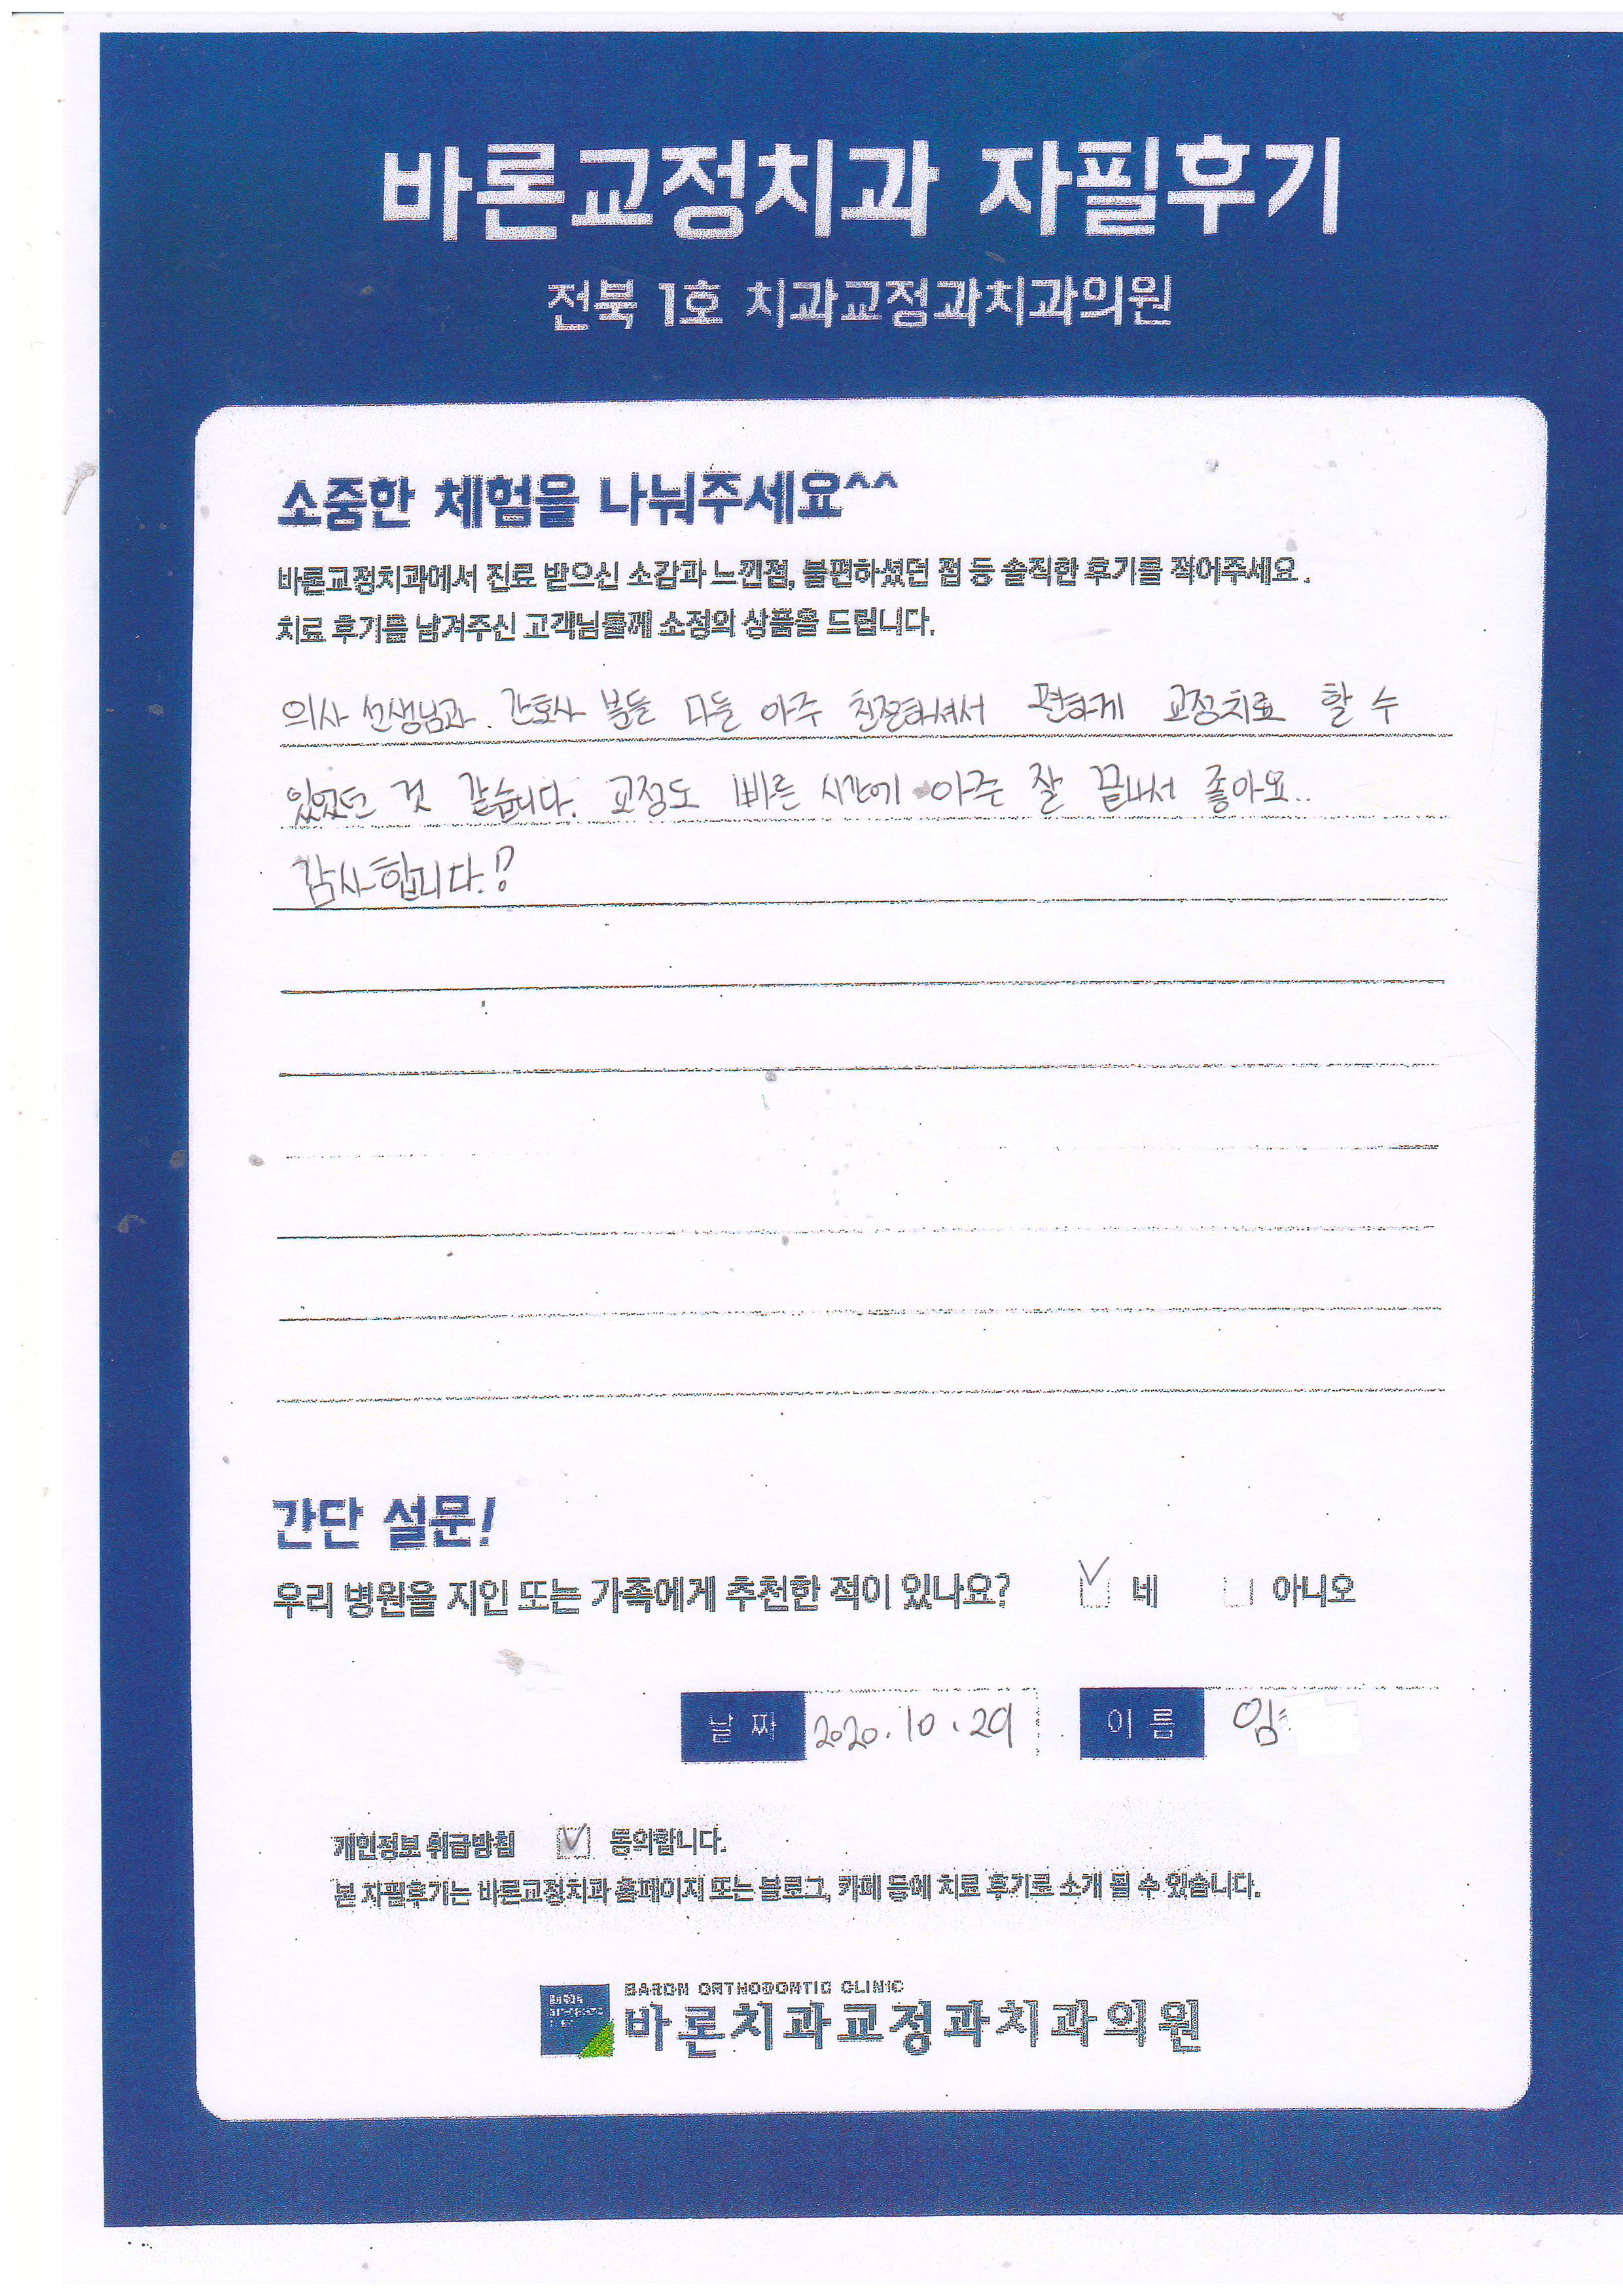 바론교정치과 자필후기
전북 1호 치과교정과치과의원
소중한 체험을 나눠주세요^^
바론교정치과에서 진료 받으신 소감과 느낀점, 불편하셨던 점 등 솔직한 후기를 적어주세요.
치료 후기를 남겨주신 고객님들께 소정의 상품을 드립니다.
의사 선생님과. 간호사 분들 다들 아주 친절하셔서 편하게 교정치료 할 수
있었던 것 같습니다. 교정도 빠른 시간에 아주 잘 끝나서 좋아요..
감사합니다.!
간단 설문!
우리 병원을 지인 또는 가족에게 추천한 적이 있나요? ☑ 네 ☐ 아니오
날짜 2020.10.29 이름 임
개인정보 취급방침 ☑ 동의합니다.
본 자필후기는 바론교정치과 홈페이지 또는 블로그, 카페 등에 치료 후기로 소개 될 수 있습니다.
BARON ORTHODONTIC CLINIC
바론치과교정과치과의원